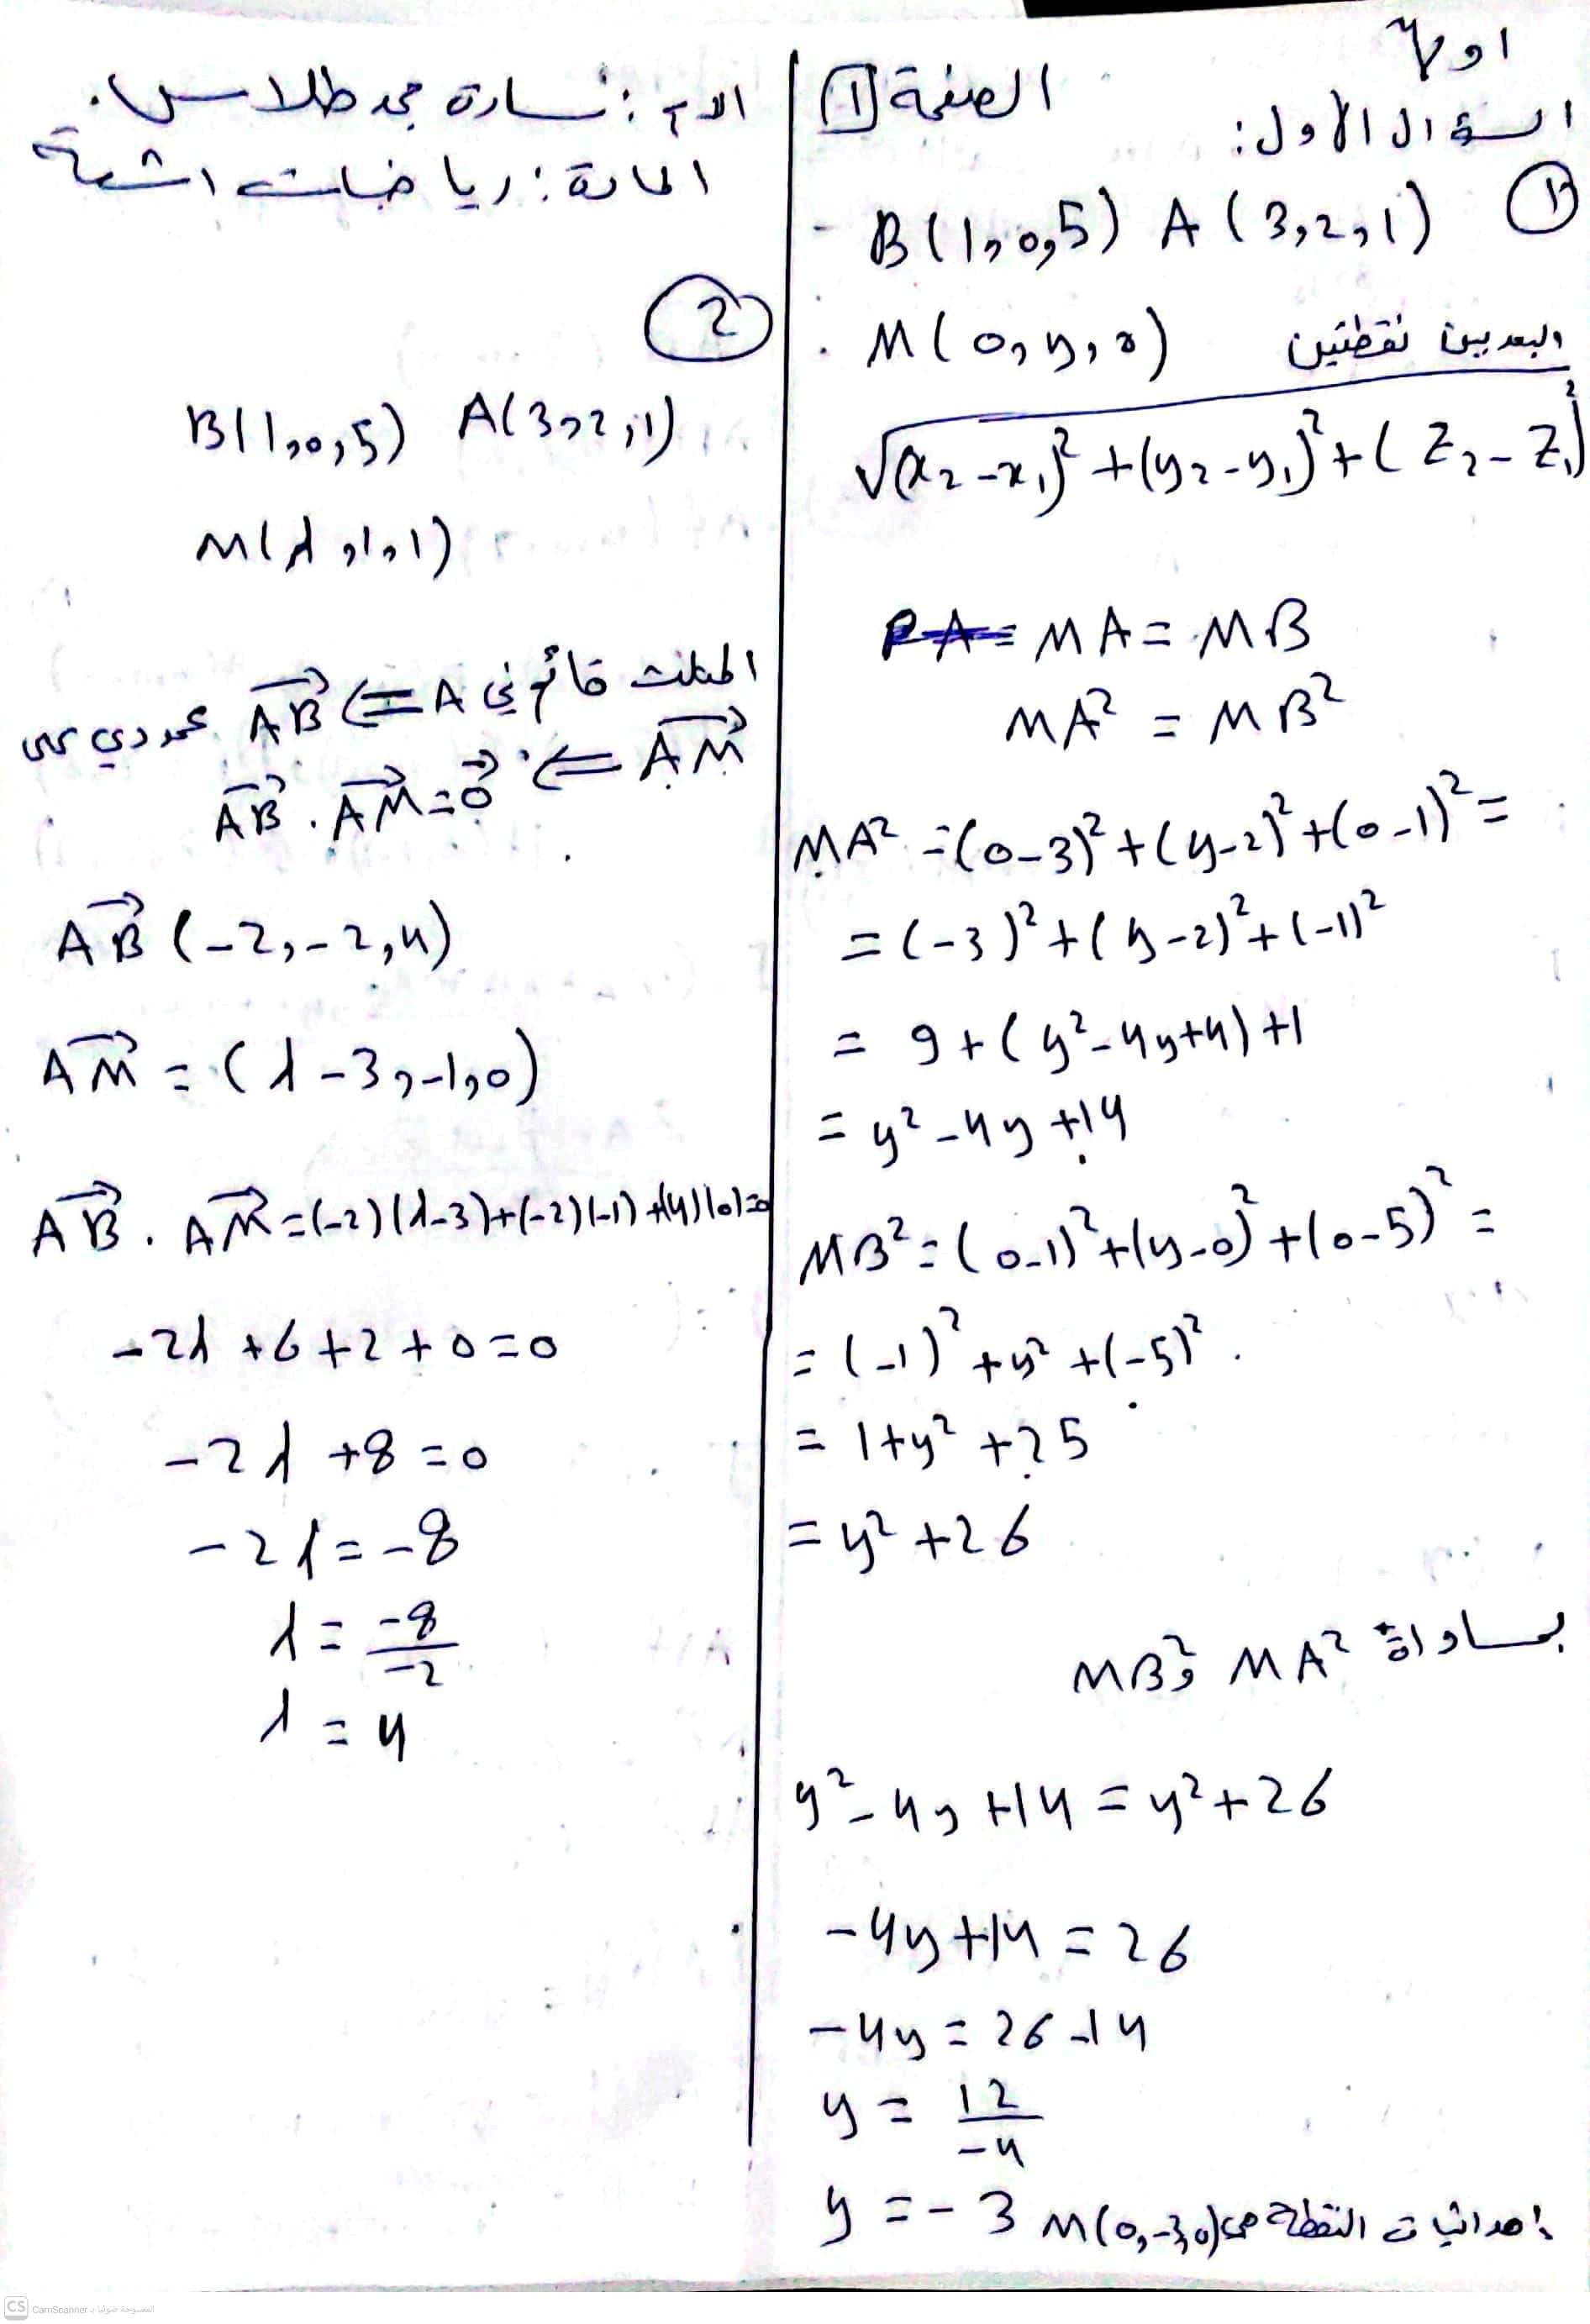 اولاً
السؤال الاول:
الصفحة 1
① A(3,2,1) B(1,0,5)
M(0,y,0) والبعد بين نقطتين
√(x₂-x₁)²+(y₂-y₁)²+(z₂-z₁)²
MA=MB
MA²=MB²
MA²=(0-3)²+(y-2)²+(0-1)²=
=(-3)²+(y-2)²+(-1)²
=9+(y²-4y+4)+1
=y²-4y+14
MB²=(0-1)²+(y-0)²+(0-5)²=
=(-1)²+y²+(-5)²
=1+y²+25
=y²+26
بمساواة MA² و MB²
y²-4y+14=y²+26
-4y+14=26
-4y=26-14
y=12/-4
y=-3
احداثيات النقطة هي M(0,-3,0)
الاسم: سارة مجد طلاس.
المادة: رياضيات اشعة
②
A(3,2,1) B(1,0,5)
M(λ,1,1)
المثلث قائم في A ⇐ AB⃗ عمودي على
AM⃗ ⇐ AB⃗.AM⃗=0⃗
AB⃗(-2,-2,4)
AM⃗=(λ-3,-1,0)
AB⃗.AM⃗=(-2)(λ-3)+(-2)(-1)+(4)(0)=0
-2λ+6+2+0=0
-2λ+8=0
-2λ=-8
λ=-8/-2
λ=4
CS CamScanner الممسوحة ضوئيا بـ